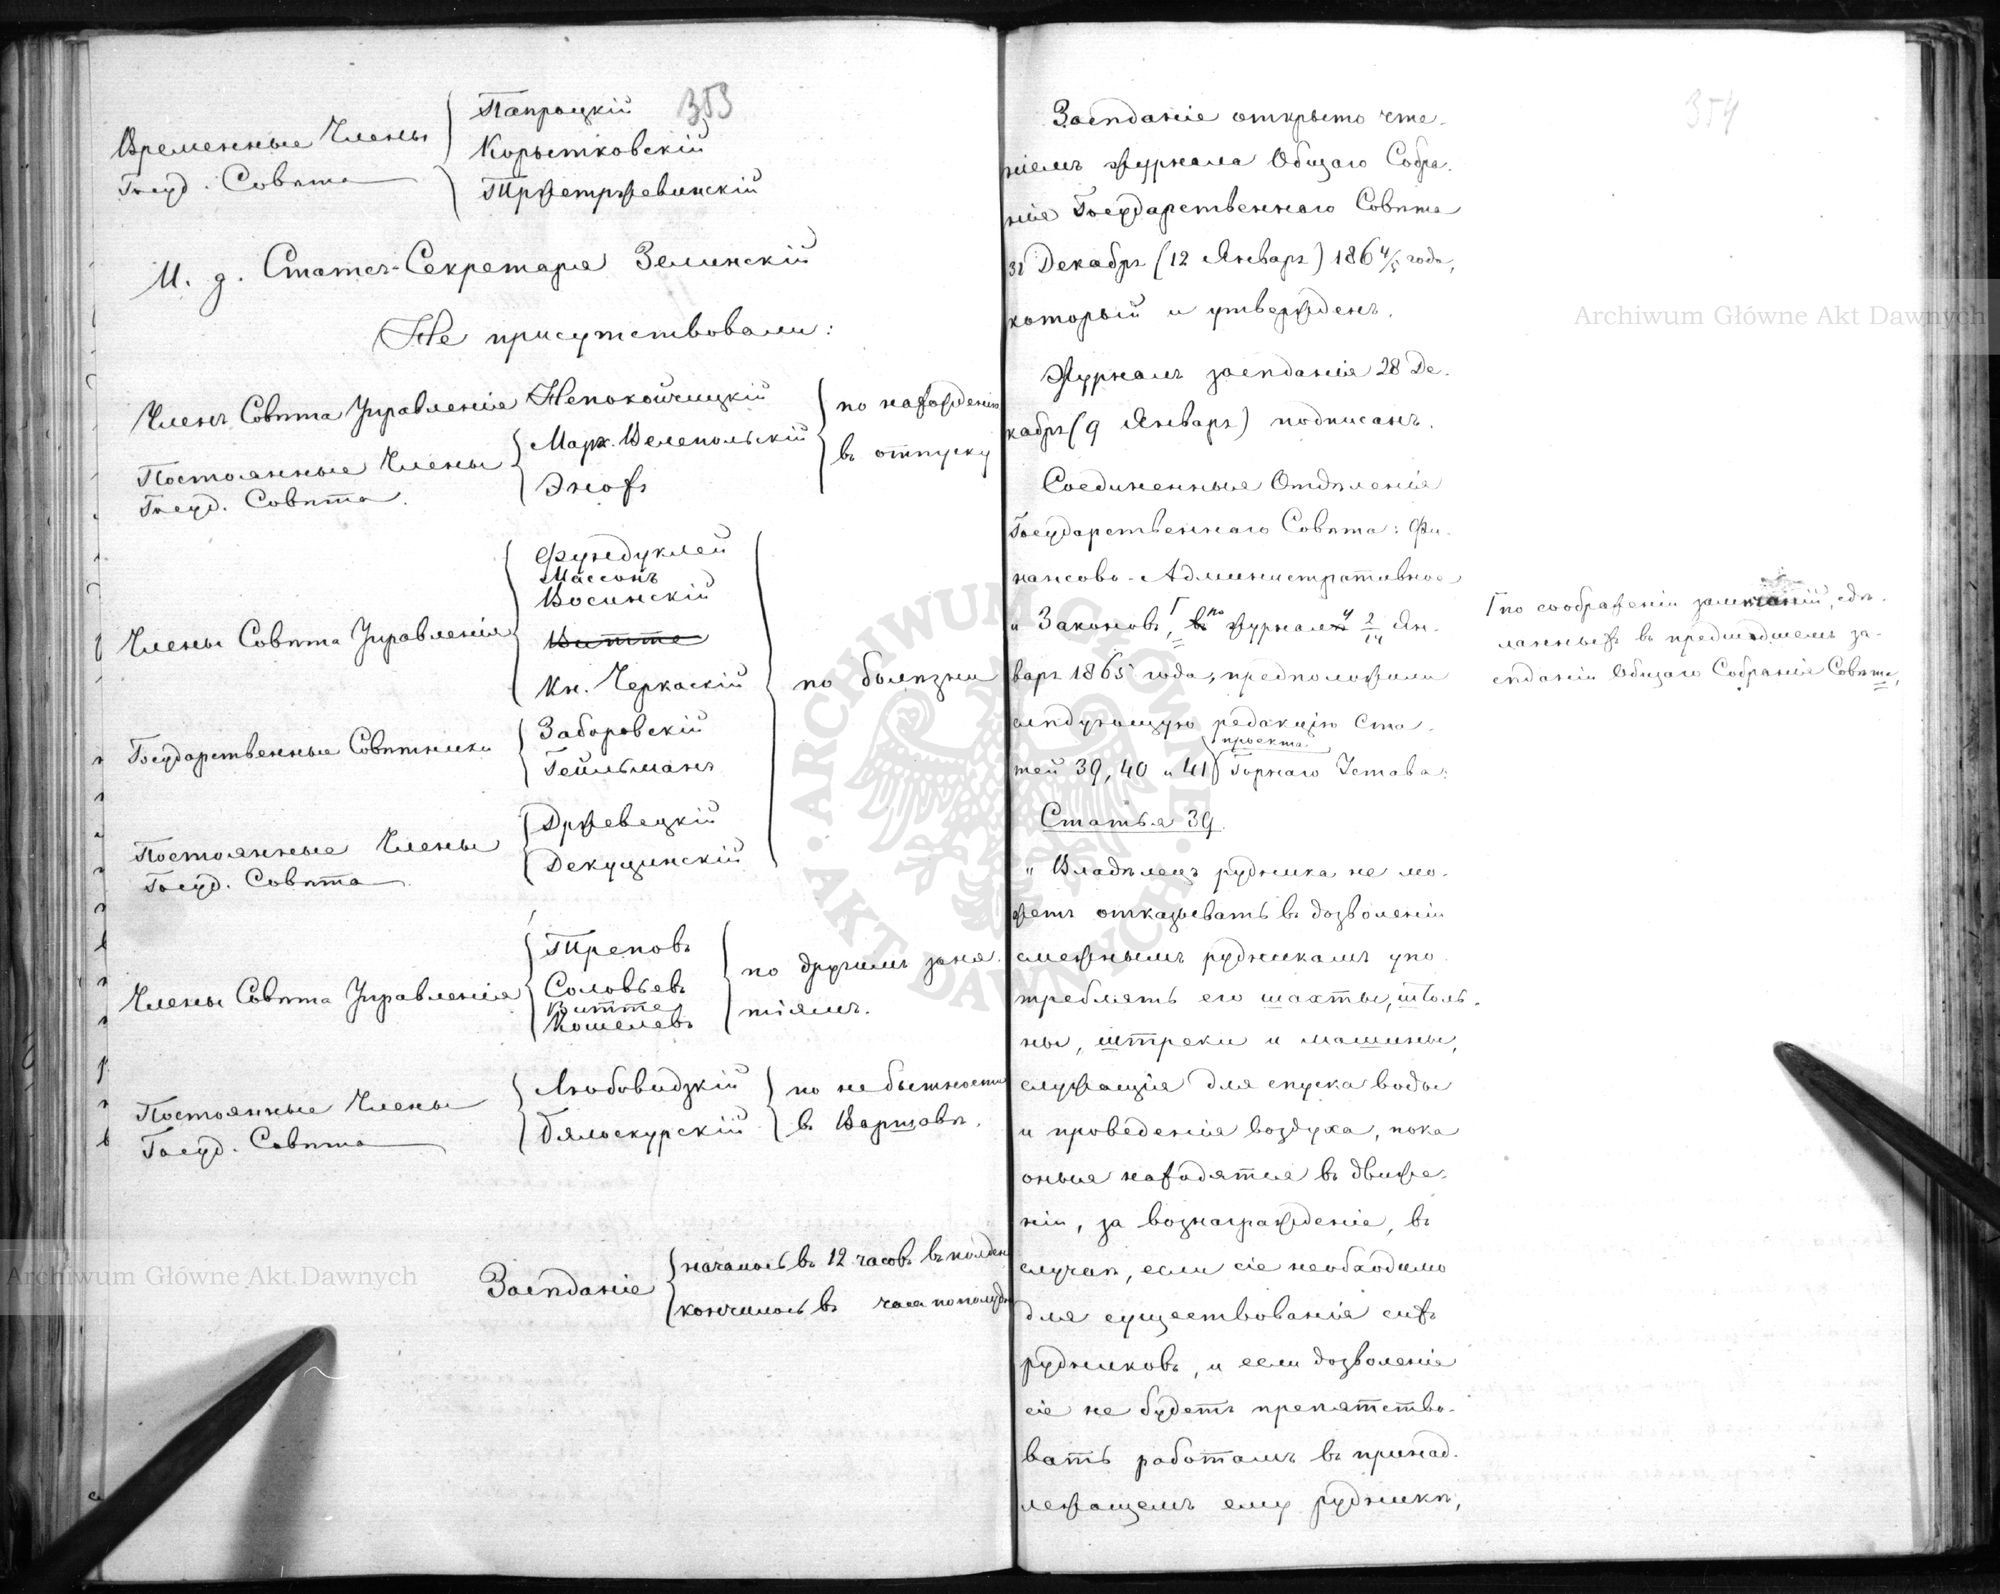 353
Временные Члены
Госуд. Совѣта
Папроцкій
Корытковскій
Тржетржевинскій
И. д. Статсъ-Секретаря Зелинскій
Не присутствовали:
Членъ Совѣта Управленія Непокойчицкій
Постоянные Члены
Госуд. Совѣта.
Марк. Велепольскій
Энохъ
по нахожденію
въ отпуску
Члены Совѣта Управленія
Фундуклей
Массонъ
Восинскій
Витте
Кн. Черкаскій
Государственные Совѣтники
Заборовскій
Гейльманъ
Постоянные Члены
Госуд. Совѣта
Држевецкій
Декуцинскій
по болѣзни
Члены Совѣта Управленія
Треповъ
Соловьевъ
Витте
Кошелевъ
по другимъ заня-
тіямъ.
Постоянные Члены
Госуд. Совѣта
Любовидзкій
Бялоскурскій
по небытности
въ Варшавѣ.
Засѣданіе
началось въ 12 часовъ въ полдень
кончилось въ часа пополуд
354
Засѣданіе открыто чте-
ніемъ журнала Общаго Собра-
нія Государственнаго Совѣта
31 Декабря (12 Января) 1864/5 года,
который и утвержденъ.
Журналъ засѣданія 28 Де-
кабря (9 Января) подписанъ.
Соединенныя Отдѣленія
Государственнаго Совѣта: Фи-
нансово-Административное
и Законовъ, Г въ по журналу 2/14 Ян-
варя 1865 года, предположили
слѣдующую редакцію Ста-
тей 39, 40 и 41 проекта Горнаго Устава:
Г по соображеніи замѣчаній, сдѣ-
ланныхъ въ предшедшемъ за-
сѣданіи Общаго Собранія Совѣта,
Статья 39.
„Владѣлецъ рудника не мо-
жетъ отказывать въ дозволеніи
смежнымъ рудникамъ упо-
треблять его шахты, штоль-
ны, штреки и машины,
служащія для спуска воды
и проведенія воздуха, пока
оныя находятся въ движе-
ніи, за вознагражденіе, въ
случаѣ, если сіе необходимо
для существованія сихъ
рудниковъ, и если дозволеніе
сіе не будетъ препятство-
вать работамъ въ принад-
лежащемъ ему рудникѣ,
Archiwum Główne Akt Dawnych
Archiwum Główne Akt Dawnych
ARCHIWUM GŁÓWNE · AKT DAWNYCH ·